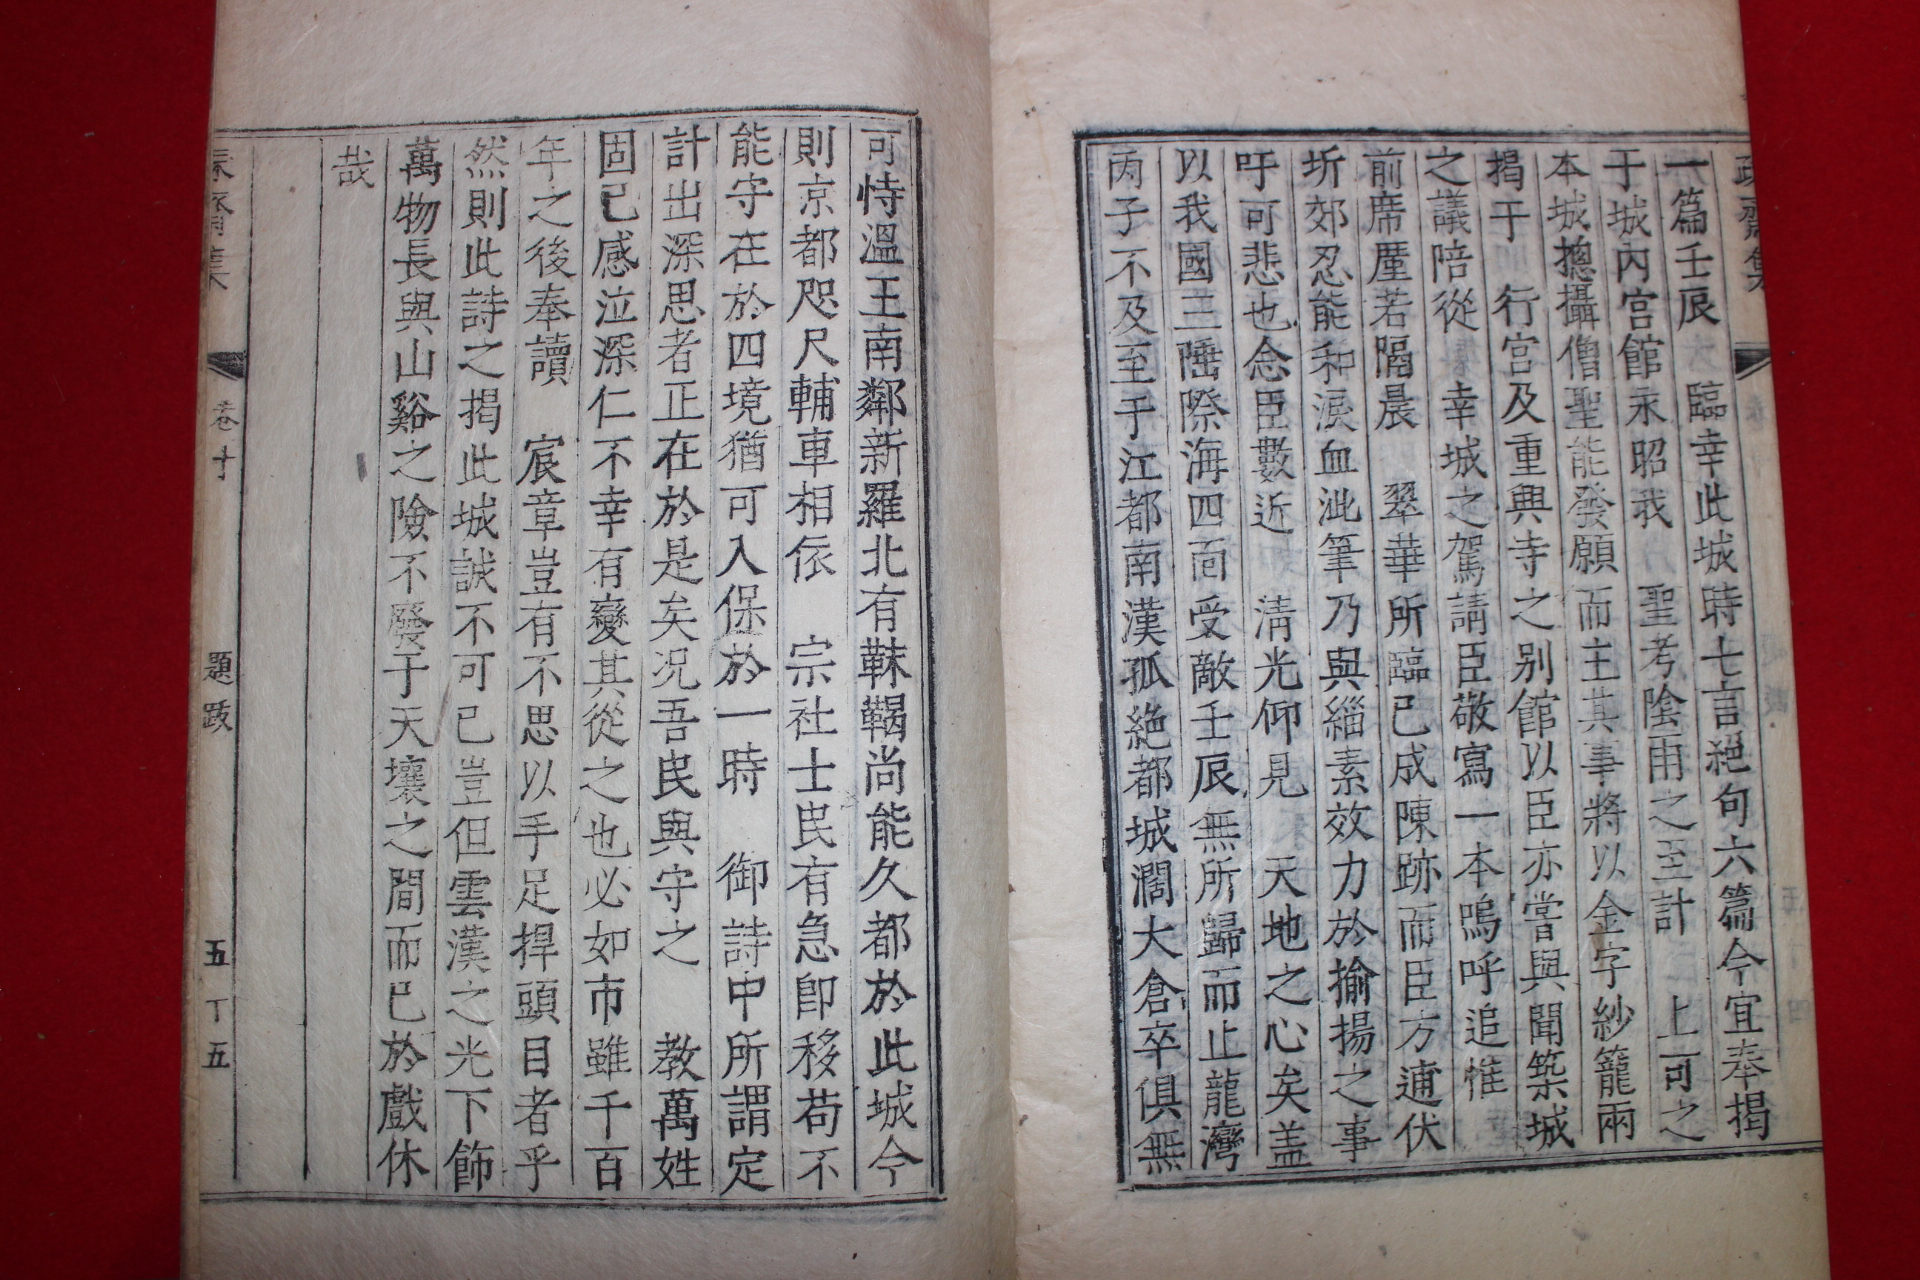 一篇壬辰 臨幸此城時七言絕句六篇今宜奉揭
于城內宮館永昭我 聖考陰雨之至計 上可之
本城摠攝僧聖能發願而主其事將以金字紗籠兩
揭于 行宮及重興寺之別館以臣亦嘗與聞築城
之議陪從 幸城之駕請臣敬寫一本嗚呼追惟
前席厪若隔晨 翠華所臨已成陳跡而臣方逋伏
圻郊忍能和淚血泚筆乃與緇素效力於揄揚之事
吁可悲也念臣數近 淸光仰見 天地之心矣盖
以我國三陲際海四面受敵壬辰無所歸而止龍灣
丙子不及至于江都南漢孤絶都城濶大倉卒俱無
可恃溫王南鄰新羅北有靺鞨尚能久都於此城今
則京都咫尺輔車相依 宗社士民有急卽移苟不
能守在於四境猶可入保於一時 御詩中所謂定
計出深思者正在於是矣况吾民與守之 教萬姓
固已感泣深仁不幸有變其從之也必如市雖千百
年之後奉讀 宸章豈有不思以手足捍頭目者乎
然則此詩之揭此城誠不可已豈但雲漢之光下飾
萬物長與山谿之險不廢于天壤之間而已於戲休
哉
卷十
題跋
五
丁五